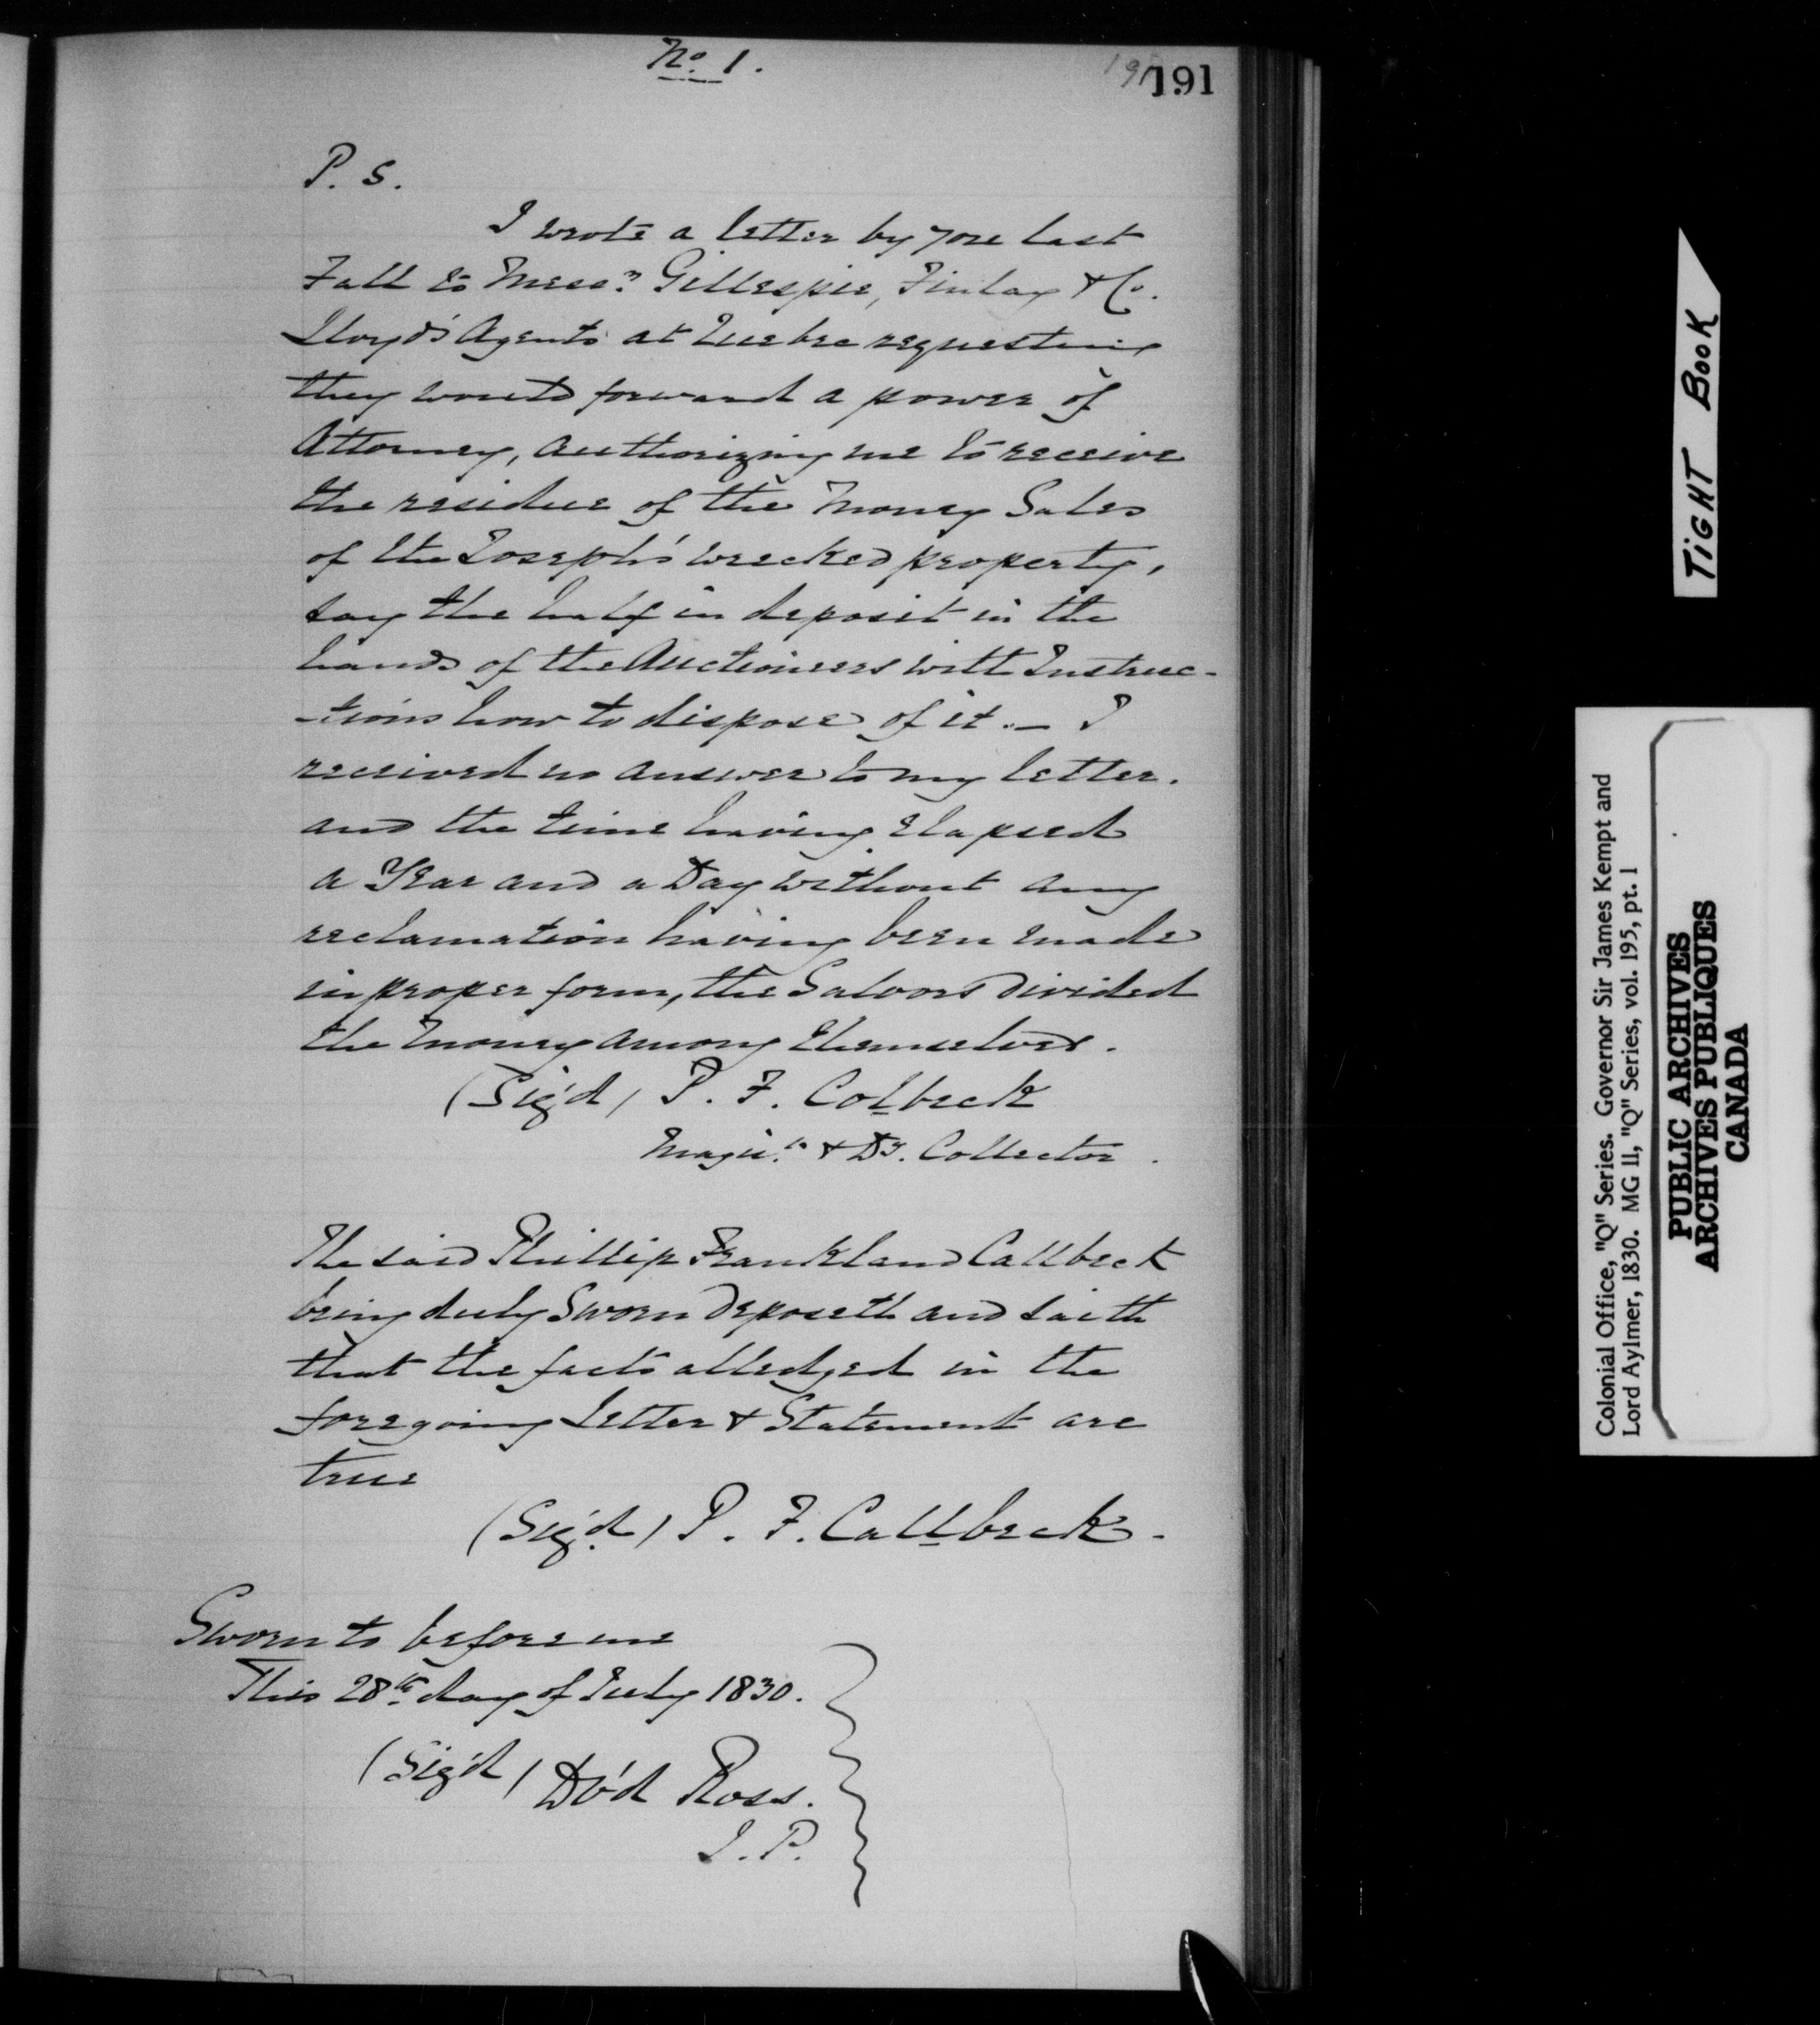 No. 1.
191
191
P. S.
I wrote a letter by post last
Fall to Messrs Gillespie, Finlay & Co.
Lloyd's Agents at Quebec requesting
they would forward a power of
Attorney, authorizing me to receive
the residue of the Money Sales
of the Joseph's wrecked property,
say the half in deposit in the
hands of the Auctioneers with Instruc-
-tions how to dispose of it. — I
received no answer to my letter.
and the time having Elapsed
a Year and a Day without any
reclamation having been made
in proper form, the Salvors divided
the money among themselves.
(Sig'd) P. F. Colbeck
Magis.te & Dy. Collector.
The said Phillip Frankland Callbeck
being duly Sworn Deposeth and saith
that the facts alledged in the
foregoing letter & Statement are
true
(Sig'd) P. F. Callbeck.
Sworn to before me
This 28th day of July 1830.
(Sig'd) D'd Ross.
J. P.
TIGHT BOOK
Colonial Office, "Q" Series. Governor Sir James Kempt and
Lord Aylmer, 1830. MG 11, "Q" Series, vol. 195, pt. 1
PUBLIC ARCHIVES
ARCHIVES PUBLIQUES
CANADA